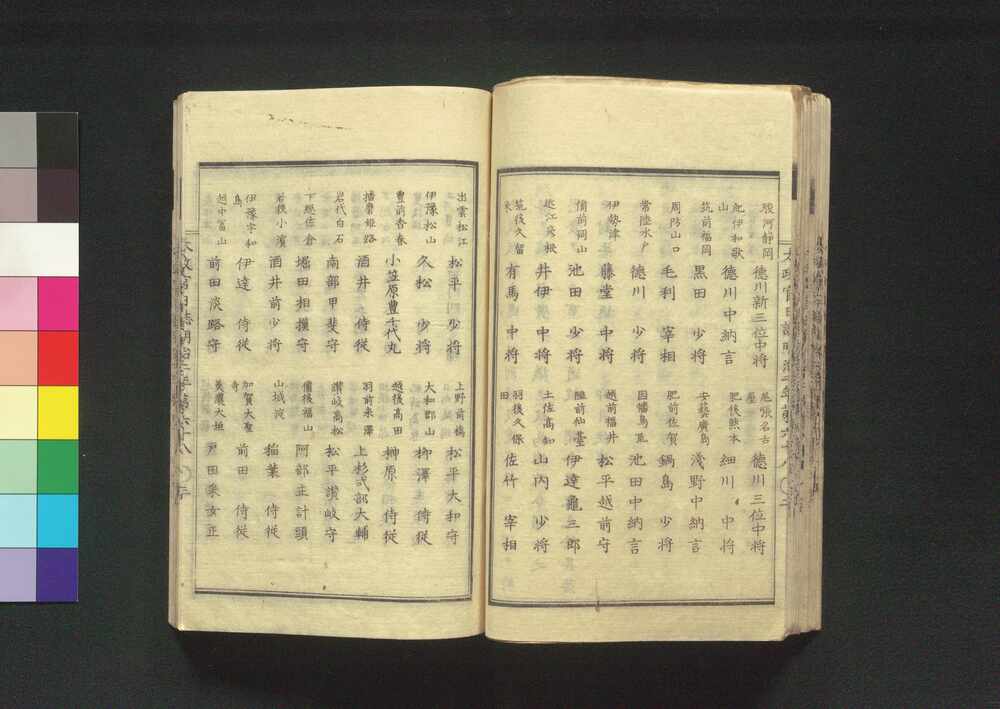 駿河静岡 德川新三位中将 尾張名古屋 德川三位中将
紀伊和歌山 德川中納言 肥後熊本 細川中将
筑前福岡 黒田少将 安藝廣島 淺野中納言
周防山口 毛利宰相 肥前佐賀 鍋島少将
常陸水戸 德川少将 因幡鳥取 池田中納言
伊勢津 藤堂中将 越前福井 松平越前守
備前岡山 池田少将 陸前仙臺 伊達龜三郎
近江彦根 井伊中将 土佐高知 山内少将
筑後久留米 有馬中将 羽後久保田 佐竹宰相
出雲松江 松平少将 上野前橋 松平大和守
伊豫松山 久松少将 大和郡山 柳澤侍従
豊前香春 小笠原豊千代丸 越後高田 榊原侍従
播磨姫路 酒井侍従 羽前米澤 上杉式部大輔
岩代白石 南部甲斐守 讃岐髙松 松平讃岐守
下總佐倉 堀田相摸守 備後福山 阿部主計頭
若狹小濱 酒井前少将 山城淀 稲葉侍従
伊豫宇和島 伊達侍従 加賀大聖寺 前田侍従
越中冨山 前田淡路守 美濃大垣 戸田采女正